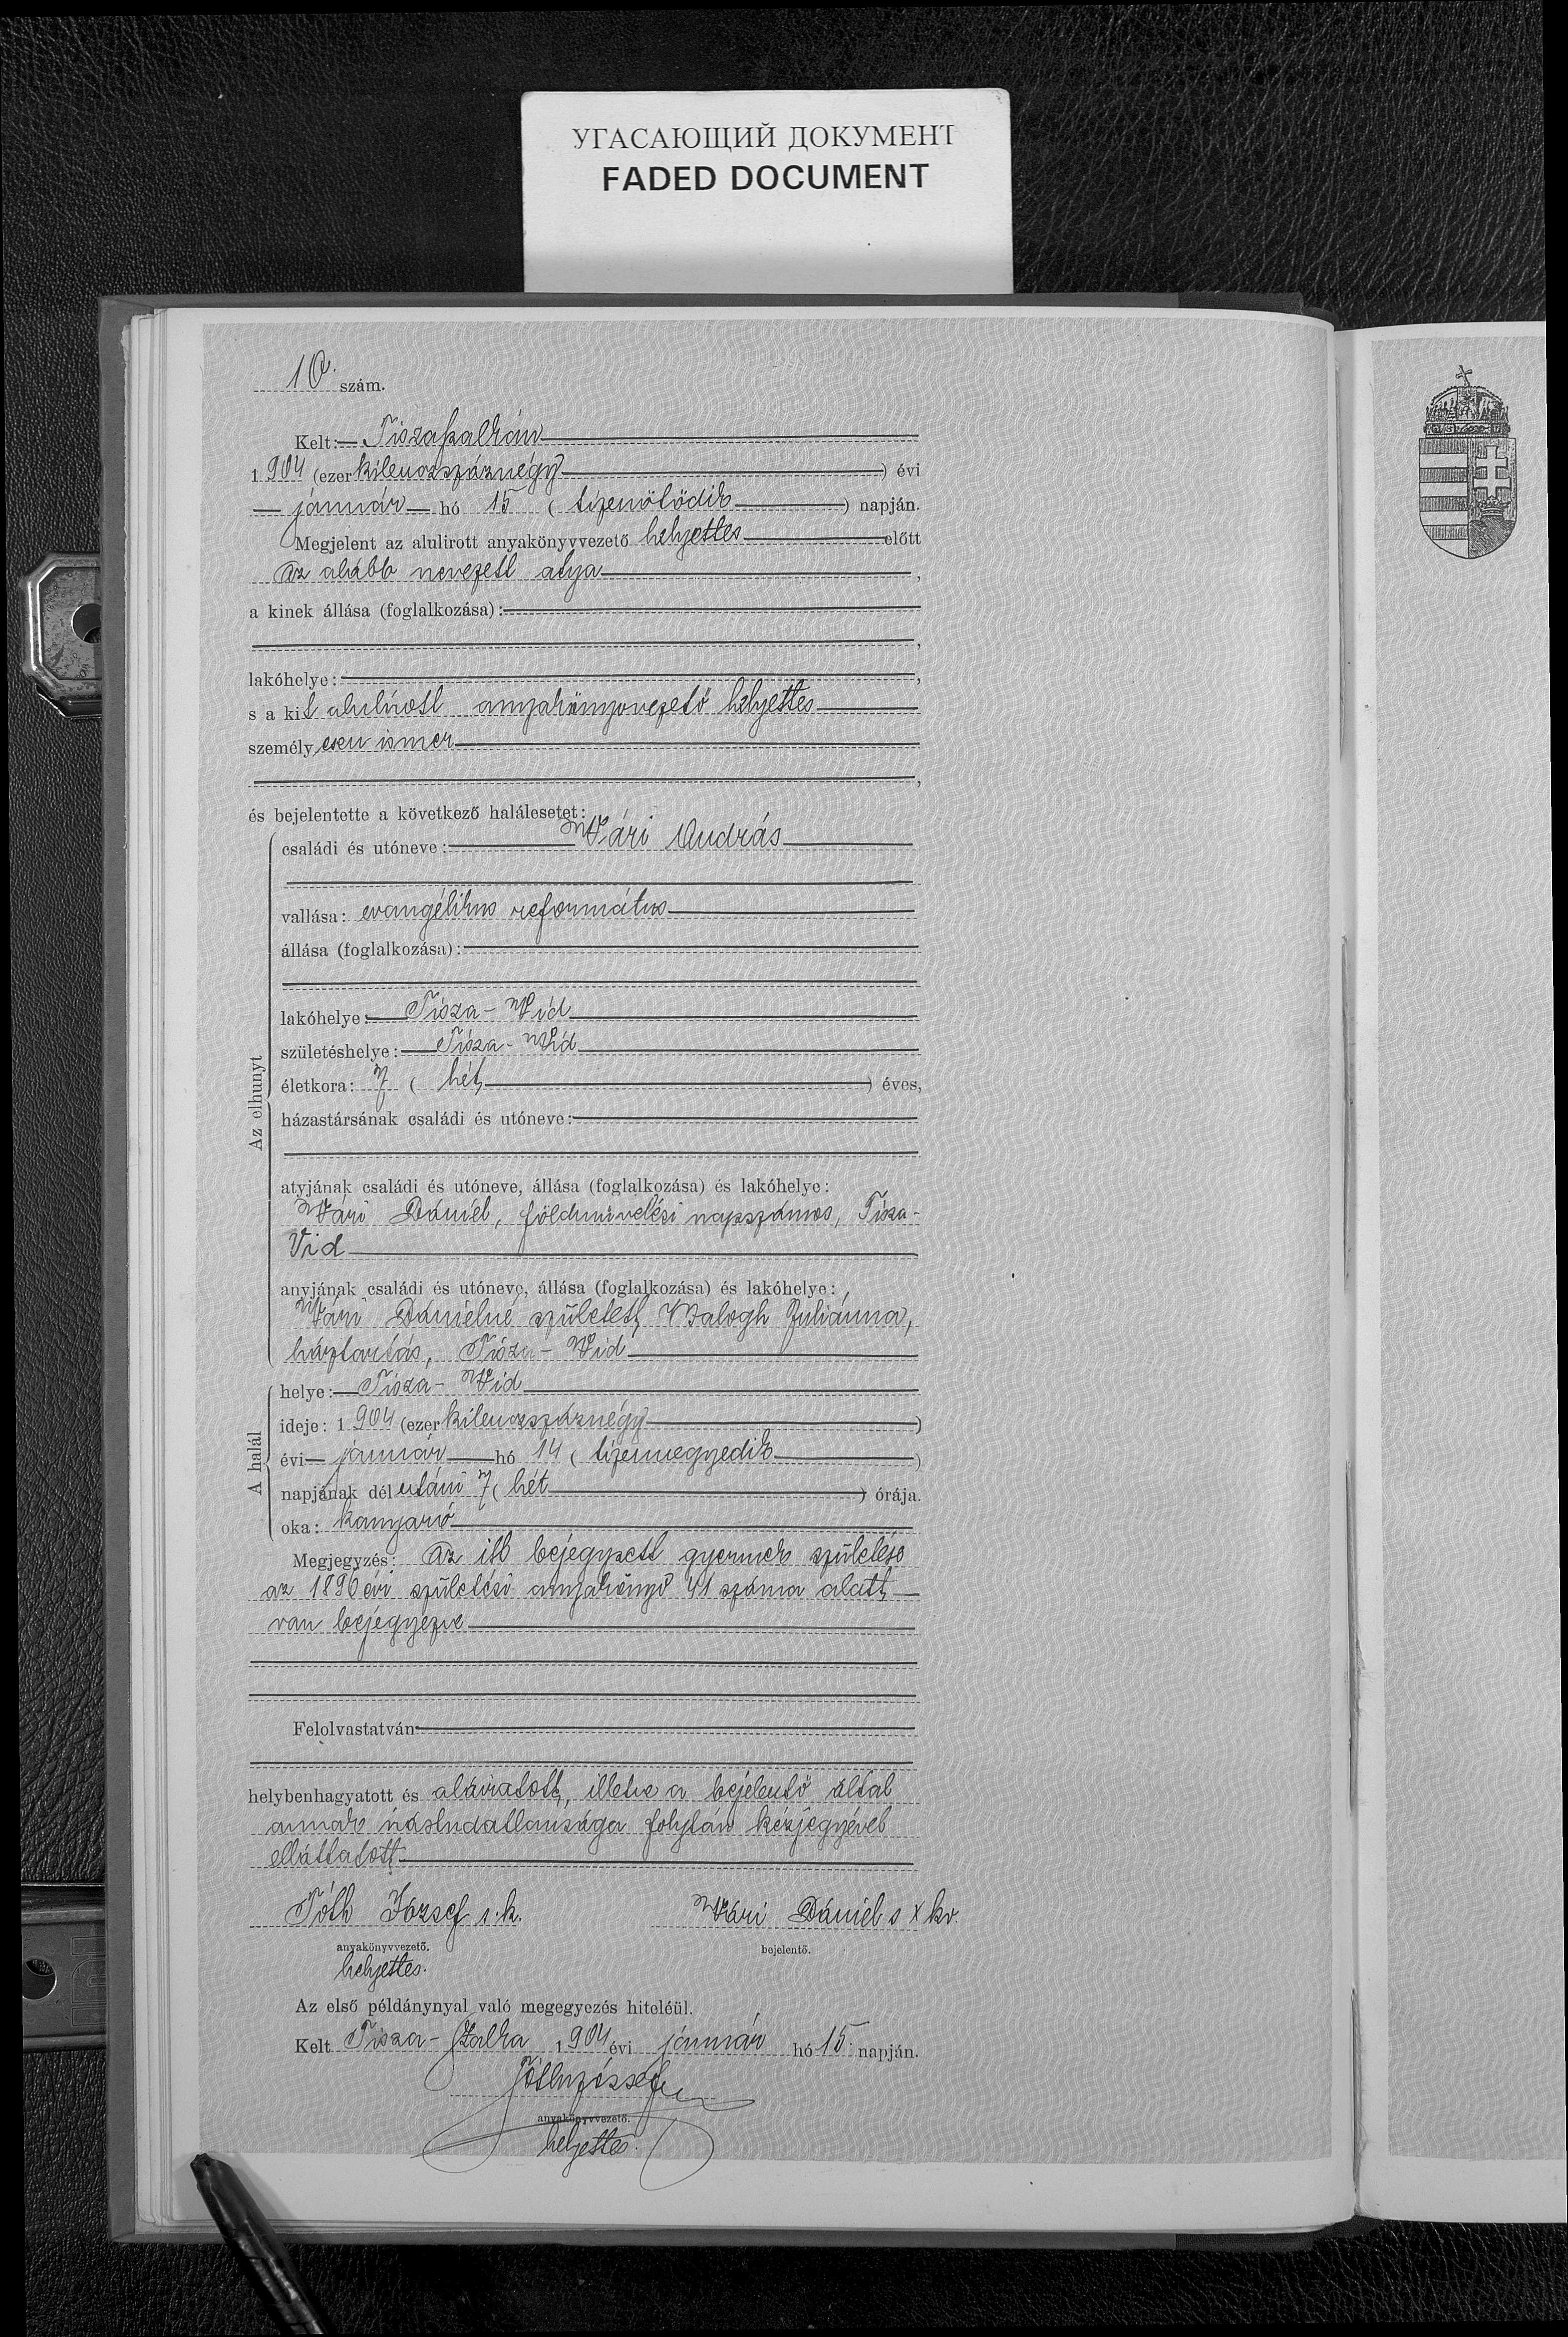 УГАСАЮЩИЙ ДОКУМЕНТ
FADED DOCUMENT
10. szám.
Kelt: Tiszaszalkán
1904 (ezer kilenczszáznégy) évi
január hó 15 (tizenötödik) napján.
Megjelent az alulirott anyakönyvvezető helyettes előtt
az alább nevezett atya,
a kinek állása (foglalkozása):
lakóhelye:
s a kit alulirott anyakönyvvezető helyettes
személyesen ismer
és bejelentette a következő halálesetet:
Az elhunyt
családi és utóneve: Vári András
vallása: evangélikus református
állása (foglalkozása):
lakóhelye: Tisza-Vid
születéshelye: Tisza-Vid
életkora: 7 (hét) éves,
házastársának családi és utóneve:
atyjának családi és utóneve, állása (foglalkozása) és lakóhelye:
Vári Dániel, földmivelési napszámos, Tisza-
Vid
anyjának családi és utóneve, állása (foglalkozása) és lakóhelye:
Vári Dánielné született Balogh Juliánna,
háztartás, Tisza-Vid
A halál
helye: Tisza-Vid
ideje: 1904 (ezer kilenczszáznégy)
évi január hó 14 (tizennegyedik)
napjának délutáni 7 (hét) órája.
oka: kanyaró
Megjegyzés: Az itt bejegyzett gyermek születése
az 1896 évi születési anyakönyv 41 száma alatt
van bejegyezve
Felolvastatván
helybenhagyatott és aláiratott, illetve a bejelentő által
annak irástudatlansága folytán kézjegyével
elláttatott.
Tóth József s.k. Vári Dániel s x kv.
anyakönyvvezető. bejelentő.
helyettes.
Az első példánynyal való megegyezés hiteléül.
Kelt Tisza-Szalka 1904 évi január hó 15 napján.
Tóth József
anyakönyvvezető.
helyettes.